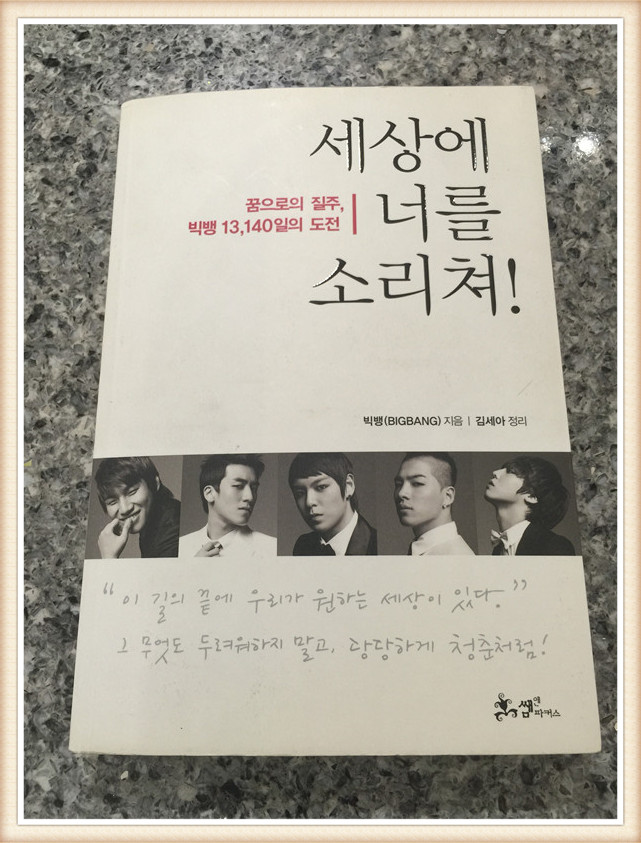 세상에
너를
소리쳐!
꿈으로의 질주,
빅뱅 13,140일의 도전
빅뱅(BIGBANG) 지음 | 김세아 정리
“이 길의 끝에 우리가 원하는 세상이 있다.”
그 무엇도 두려워하지 말고, 당당하게 청춘처럼!
쌤앤
파커스